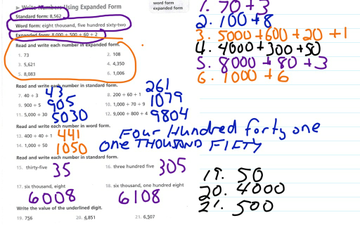 Numbers Using Expanded Form
Standard form: 8,562
Word form: eight thousand, five hundred sixty-two
Expanded form: 8,000 + 500 + 60 + 2
word form
expanded form
Read and write each number in expanded form.
1. 73
2. 108
3. 5,621
4. 4,350
5. 8,083
6. 1,006
1. 70+3
2. 100+8
3. 5000+600+20+1
4. 4000+300+50
5. 8000+80+3
6. 1000+6
Read and write each number in standard form.
7. 40 + 3 43
8. 200 + 60 + 1 261
9. 900 + 5 905
10. 1,000 + 70 + 9 1079
11. 5,000 + 30 5030
12. 9,000 + 800 + 4 9804
Read and write each number in word form.
13. 400 + 40 + 1 441 FOUR HUNDRED FORTY ONE
14. 1,000 + 50 1050 ONE THOUSAND FIFTY
Read and write each number in standard form.
15. thirty-five 35
16. three hundred five 305
17. six thousand, eight 6008
18. six thousand, one hundred eight 6108
Write the value of the underlined digit.
19. 756
20.
21.
19. 50
20. 4000
21. 500